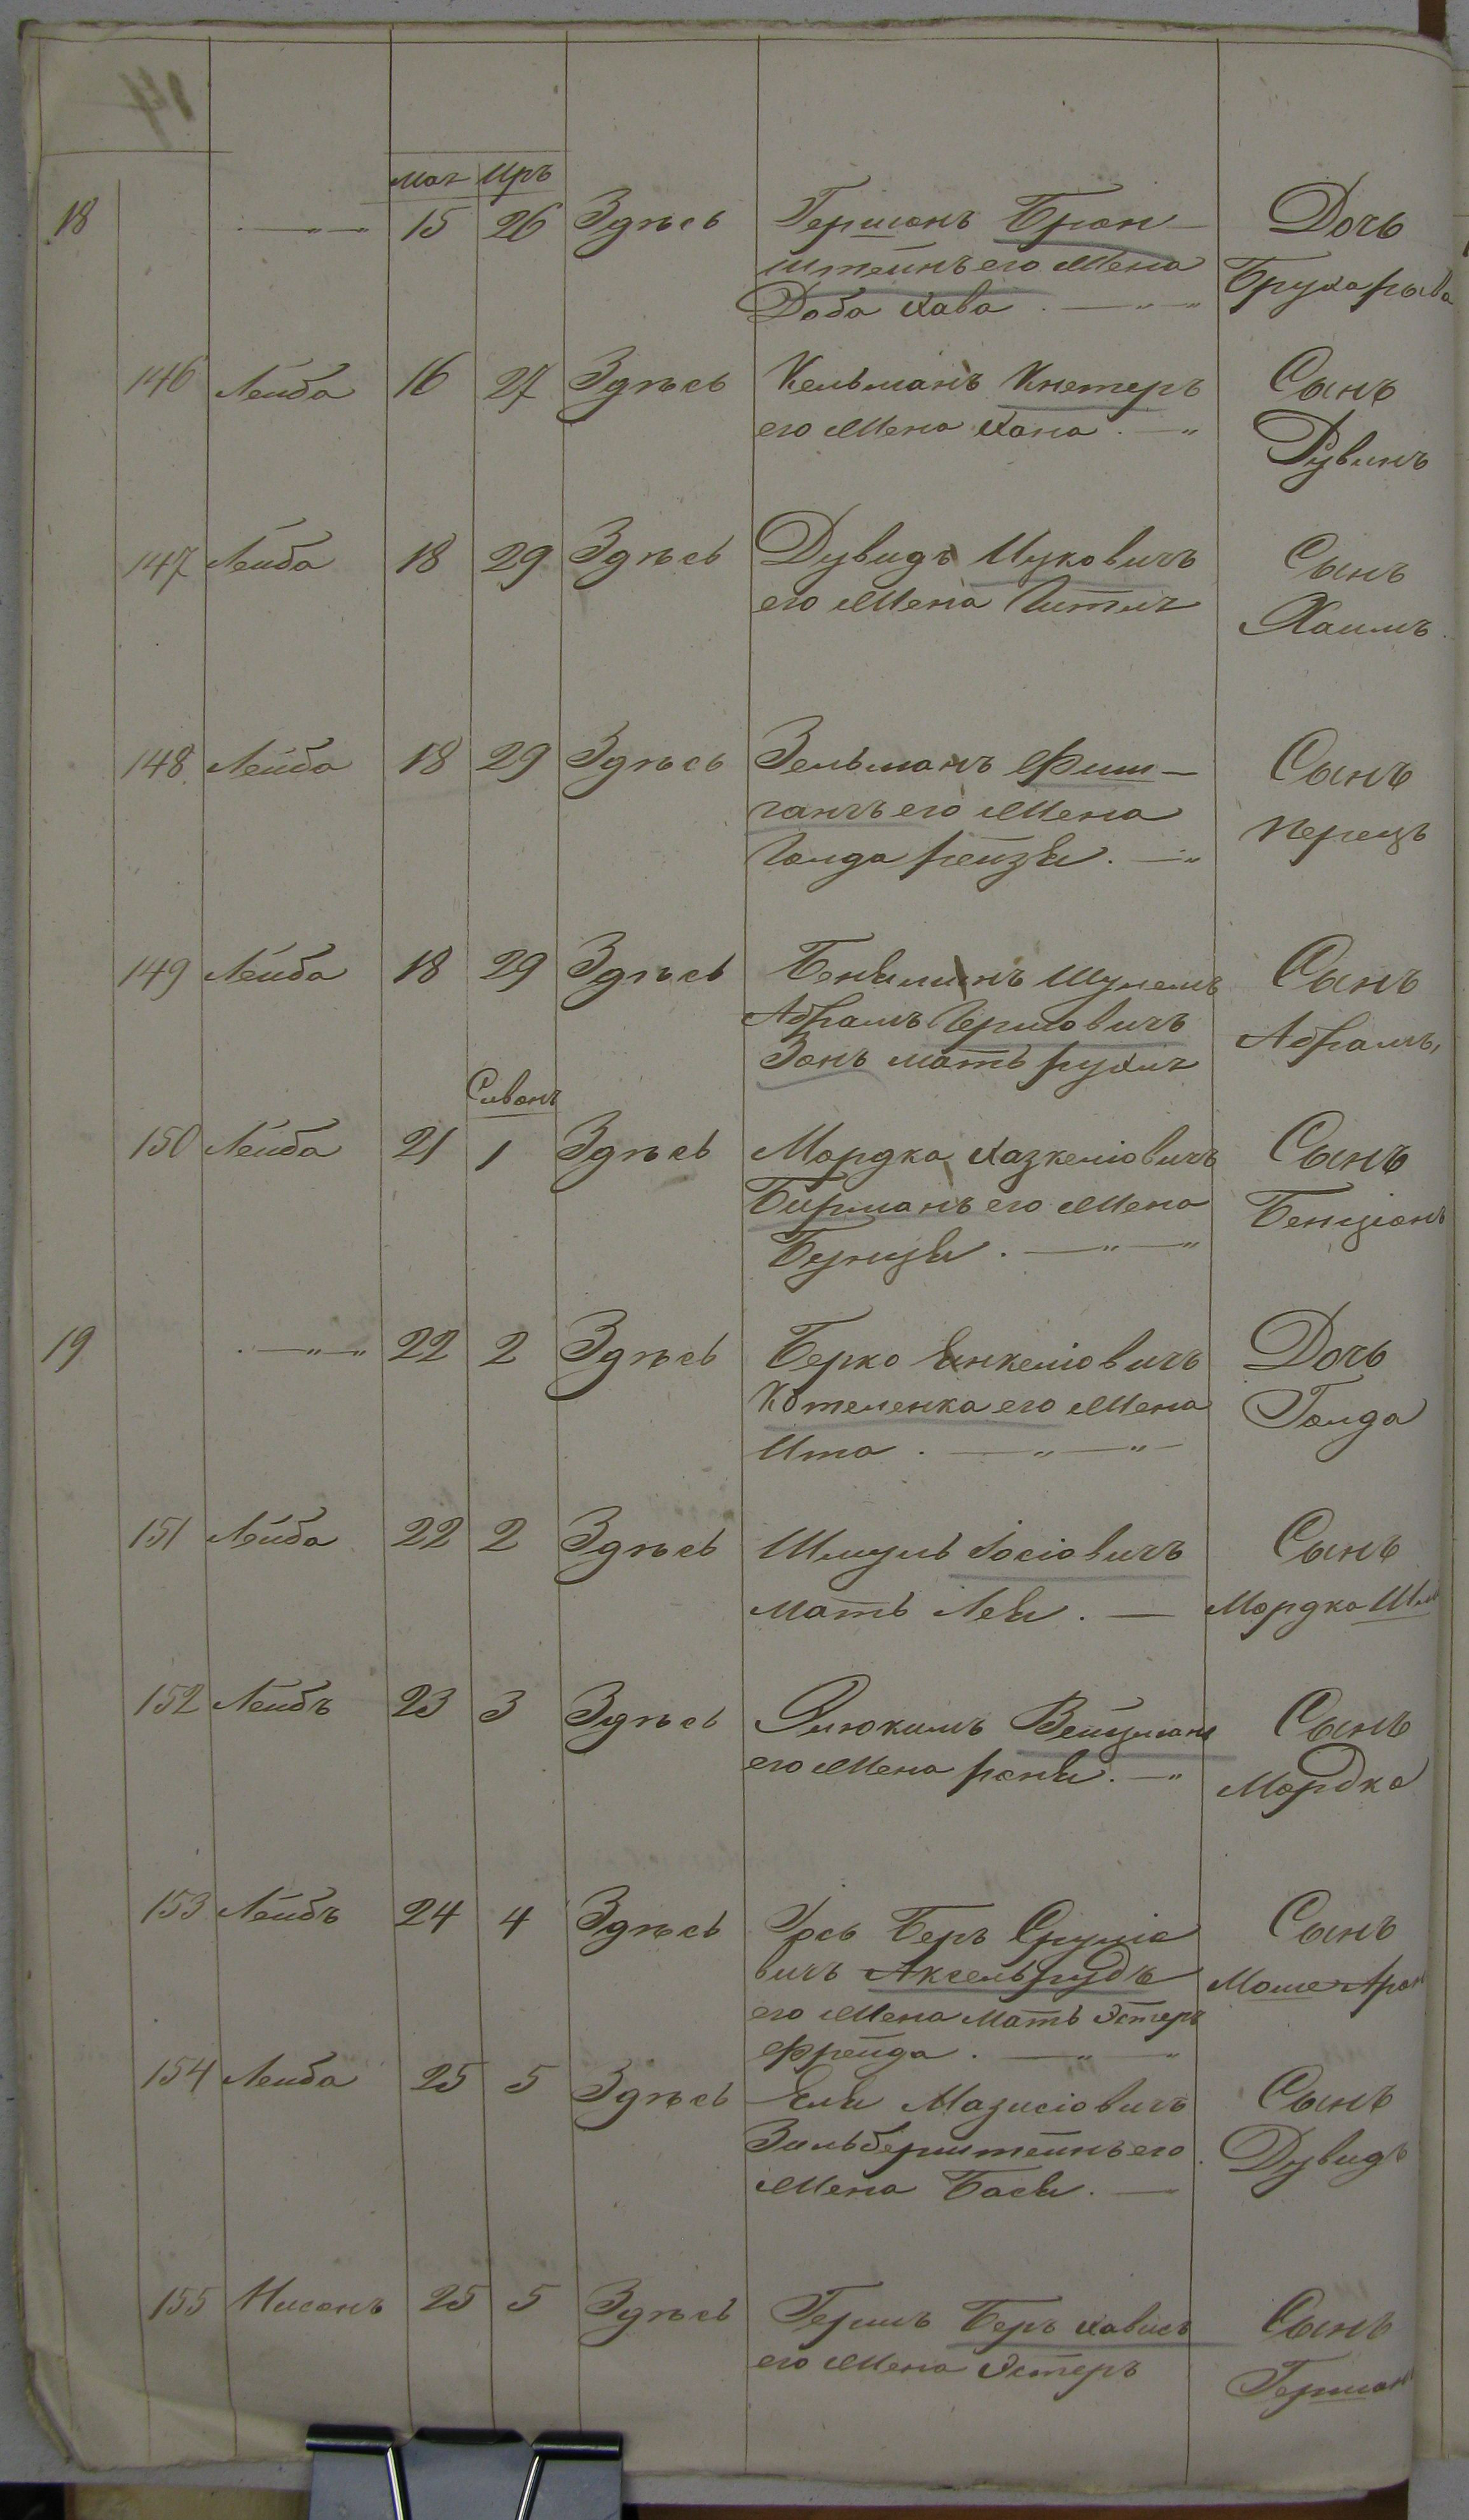 14
Маі Иръ
18 15 26 Здѣсь Гершонъ Брон- Дочь
штейнъ его Жена Бруха рыва
Доба Хава
146 Лейба 16 27 Здѣсь Кельманъ Кнетеръ Сынъ
его Жена Хана Рувинъ
147 Лейба 18 29 Здѣсь Дувидъ Ицковичъ Сынъ
его Жена Гитля Хаимъ
148 Лейба 18 29 Здѣсь Зельманъ Фиш- Сынъ
ганъ его Жена Перецъ
Голда рейзя
149 Лейба 18 29 Здѣсь Беняминъ Сынъ
Абрамъ Гершовичъ Абрамъ
Зонъ мать рухля
Сивонъ
150 Лейба 21 1 Здѣсь Мордка Хазкеліовичъ Сынъ
Бирманъ его Жена Бенціонъ
Бунця
19 22 2 Здѣсь Берко Янкеліовичъ Дочь
Котеленка его Жена Голда
Ита
151 Лейба 22 2 Здѣсь Шмуль Іосіовичъ Сынъ
мать Лея Мордко Шм
152 Лейбъ 23 3 Здѣсь Элюкимъ Вейцман Сынъ
его Жена роня Мордко
153 Лейбъ 24 4 Здѣсь Іось Беръ Сруліо Сынъ
вичъ Аксельрудъ Моше Арон
его Жена мать Эстеръ
Фрейда
154 Лейба 25 5 Здѣсь Еля Мазисіовичъ Сынъ
Зильберштейнъ его Дувидъ
Жена Бася
155 Нисонъ 25 5 Здѣсь Гершъ Беръ Хависъ Сынъ
его Жена Эстеръ Гершон